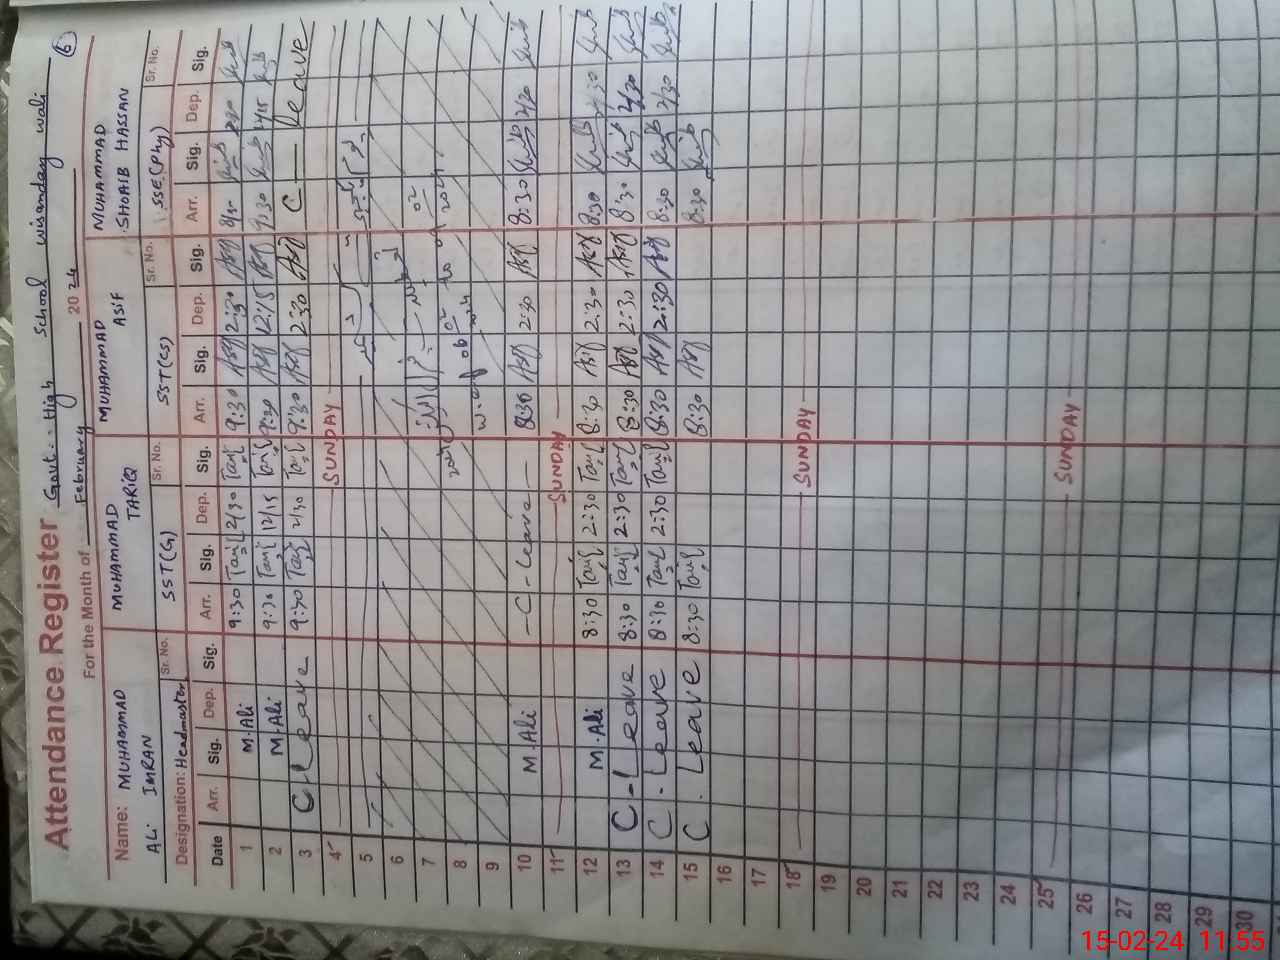 Attendance Register Govt. High School wisanday wali 6
For the Month of February 2024
Name: MUHAMMAD ALi IMRAN MUHAMMAD TARIQ MUHAMMAD ASIF MUHAMMAD SHOAIB HASSAN
Designation: Headmaster Sr. No. SST(G) Sr. No. SST(CS) Sr. No. SSE(Phy) Sr. No.
Date Arr. Sig. Dep. Sig. Arr. Sig. Dep. Sig. Arr. Sig. Dep. Sig. Arr. Sig. Dep. Sig.
1 M.Ali 9:30 Tariq 2/30 Tariq 9:30 Asif 2:30 Asif
2 M.Ali 9:30 Tariq 12/15 Tariq 9:30 Asif 12:15 Asif 9/30 2/15
3 C.Leave 9:30 Tariq 2/30 Tariq 9:30 Asif 2:30 Asif C Leave
4 SUNDAY
5
6
7
8
9
10 M.Ali C-Leave 8:30 Asif 2:30 Asif 8:30 2/30
11 SUNDAY
12 M.Ali 8:30 Tariq 2:30 Tariq 8:30 Asif 2:30 Asif 8:30 2/30
13 C-Leave 8:30 Tariq 2:30 Tariq 8:30 Asif 2:30 Asif 8:30 2/30
14 C.Leave 8:30 Tariq 2:30 Tariq 8:30 Asif 2:30 Asif 8:30 2/30
15 C.Leave 8:30 Tariq 8:30 Asif 8:30
16
17
18 SUNDAY
19
20
21
22
23
24
25 SUNDAY
26
27
28
29
30
15-02-24 11:55